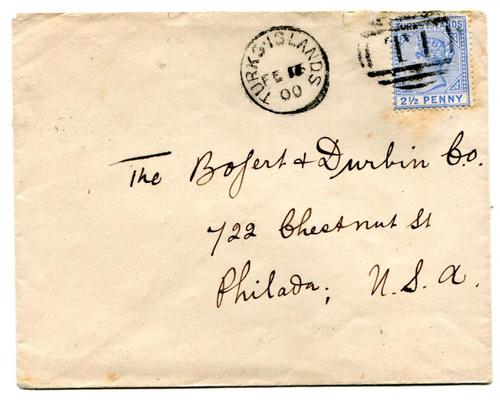 TURKS ISLANDS
FE 15
00
TURKS ISLANDS
T1
2½ PENNY
The Bogert & Durbin Co.
722 Chestnut St
Philada; U.S.A.